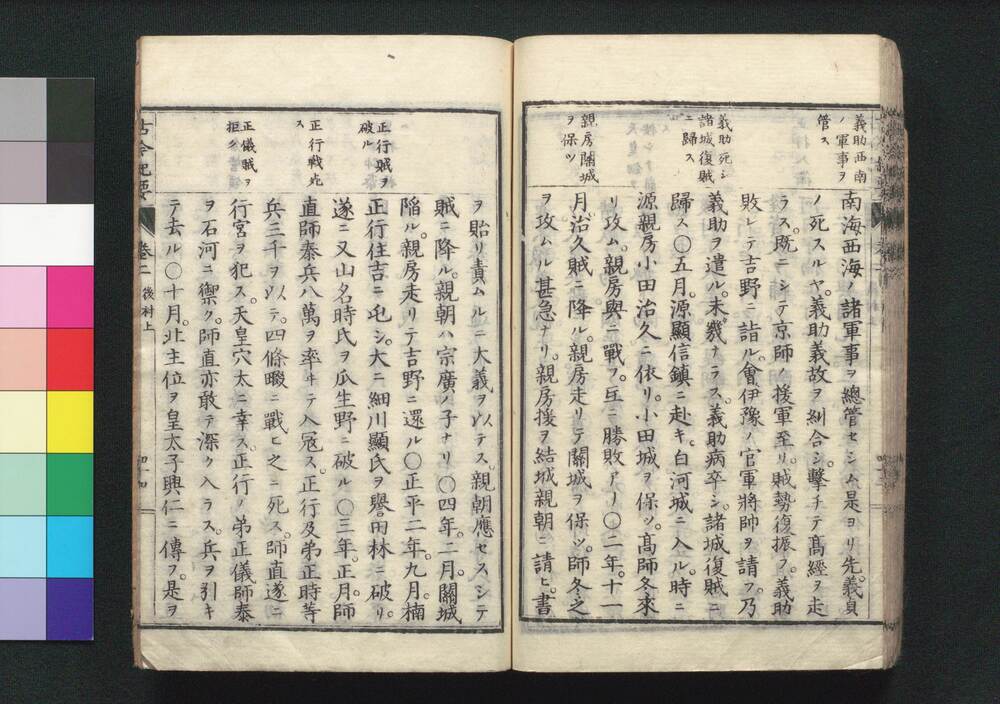 義助西南
ノ軍事ヲ
管ス
義助死シ
諸城復賊
ニ歸ス
親房關城
ヲ保ツ
南海西海ノ諸軍事ヲ總管セシム是ヨリ先。義貞
ノ死スルヤ。義助義故ヲ糾合シ。擊チテ髙經ヲ走
ラス。既ニシテ京師ノ援軍至リ。賊勢復振フ。義助
敗レテ吉野ニ詣ル。會伊豫ノ官軍將帥ヲ請フ。乃
義助ヲ遣ル。末幾ナラス。義助病卒シ。諸城復賊ニ
歸ス〇五月。源顯信鎮ニ赴キ。白河城ニ入ル。時ニ
源親房小田治久ニ依リ。小田城ヲ保ツ。髙師冬來
リ攻ム。親房與ニ戰フ。互ニ勝敗アリ〇二年。十一
月。治久賊ニ降ル。親房走リテ關城ヲ保ツ。師冬之
ヲ攻ムル甚急ナリ。親房援ヲ結城親朝ニ請ヒ。書
正行賊ヲ
破ル
正行戰死
ス
正儀賊ヲ
拒ク
ヲ貽リ責ムルニ大義ヲ以テス。親朝應セスシテ
賊ニ降ル。親朝ハ宗廣ノ子ナリ〇四年。二月。關城
陥ル。親房走リテ吉野ニ還ル〇正平二年。九月。楠
正行住吉ニ屯シ。大ニ細川顯氏ヲ譽田林ニ破リ。
遂ニ又山名時氏ヲ瓜生野ニ破ル〇三年。正月。師
直師泰兵八萬ヲ率ヰテ入寇ス。正行及弟正時等
兵三千ヲ以テ。四條畷ニ戰ヒ之ニ死ス。師直遂ニ
行宮ヲ犯ス。天皇穴太ニ幸ス。正行ノ弟正儀師泰
ヲ石河ニ禦ク。師直亦敢テ深ク入ラス。兵ヲ引キ
テ去ル〇十月。北主位ヲ皇太子興仁ニ傳フ。是ヲ
古今紀要
卷二
後村上